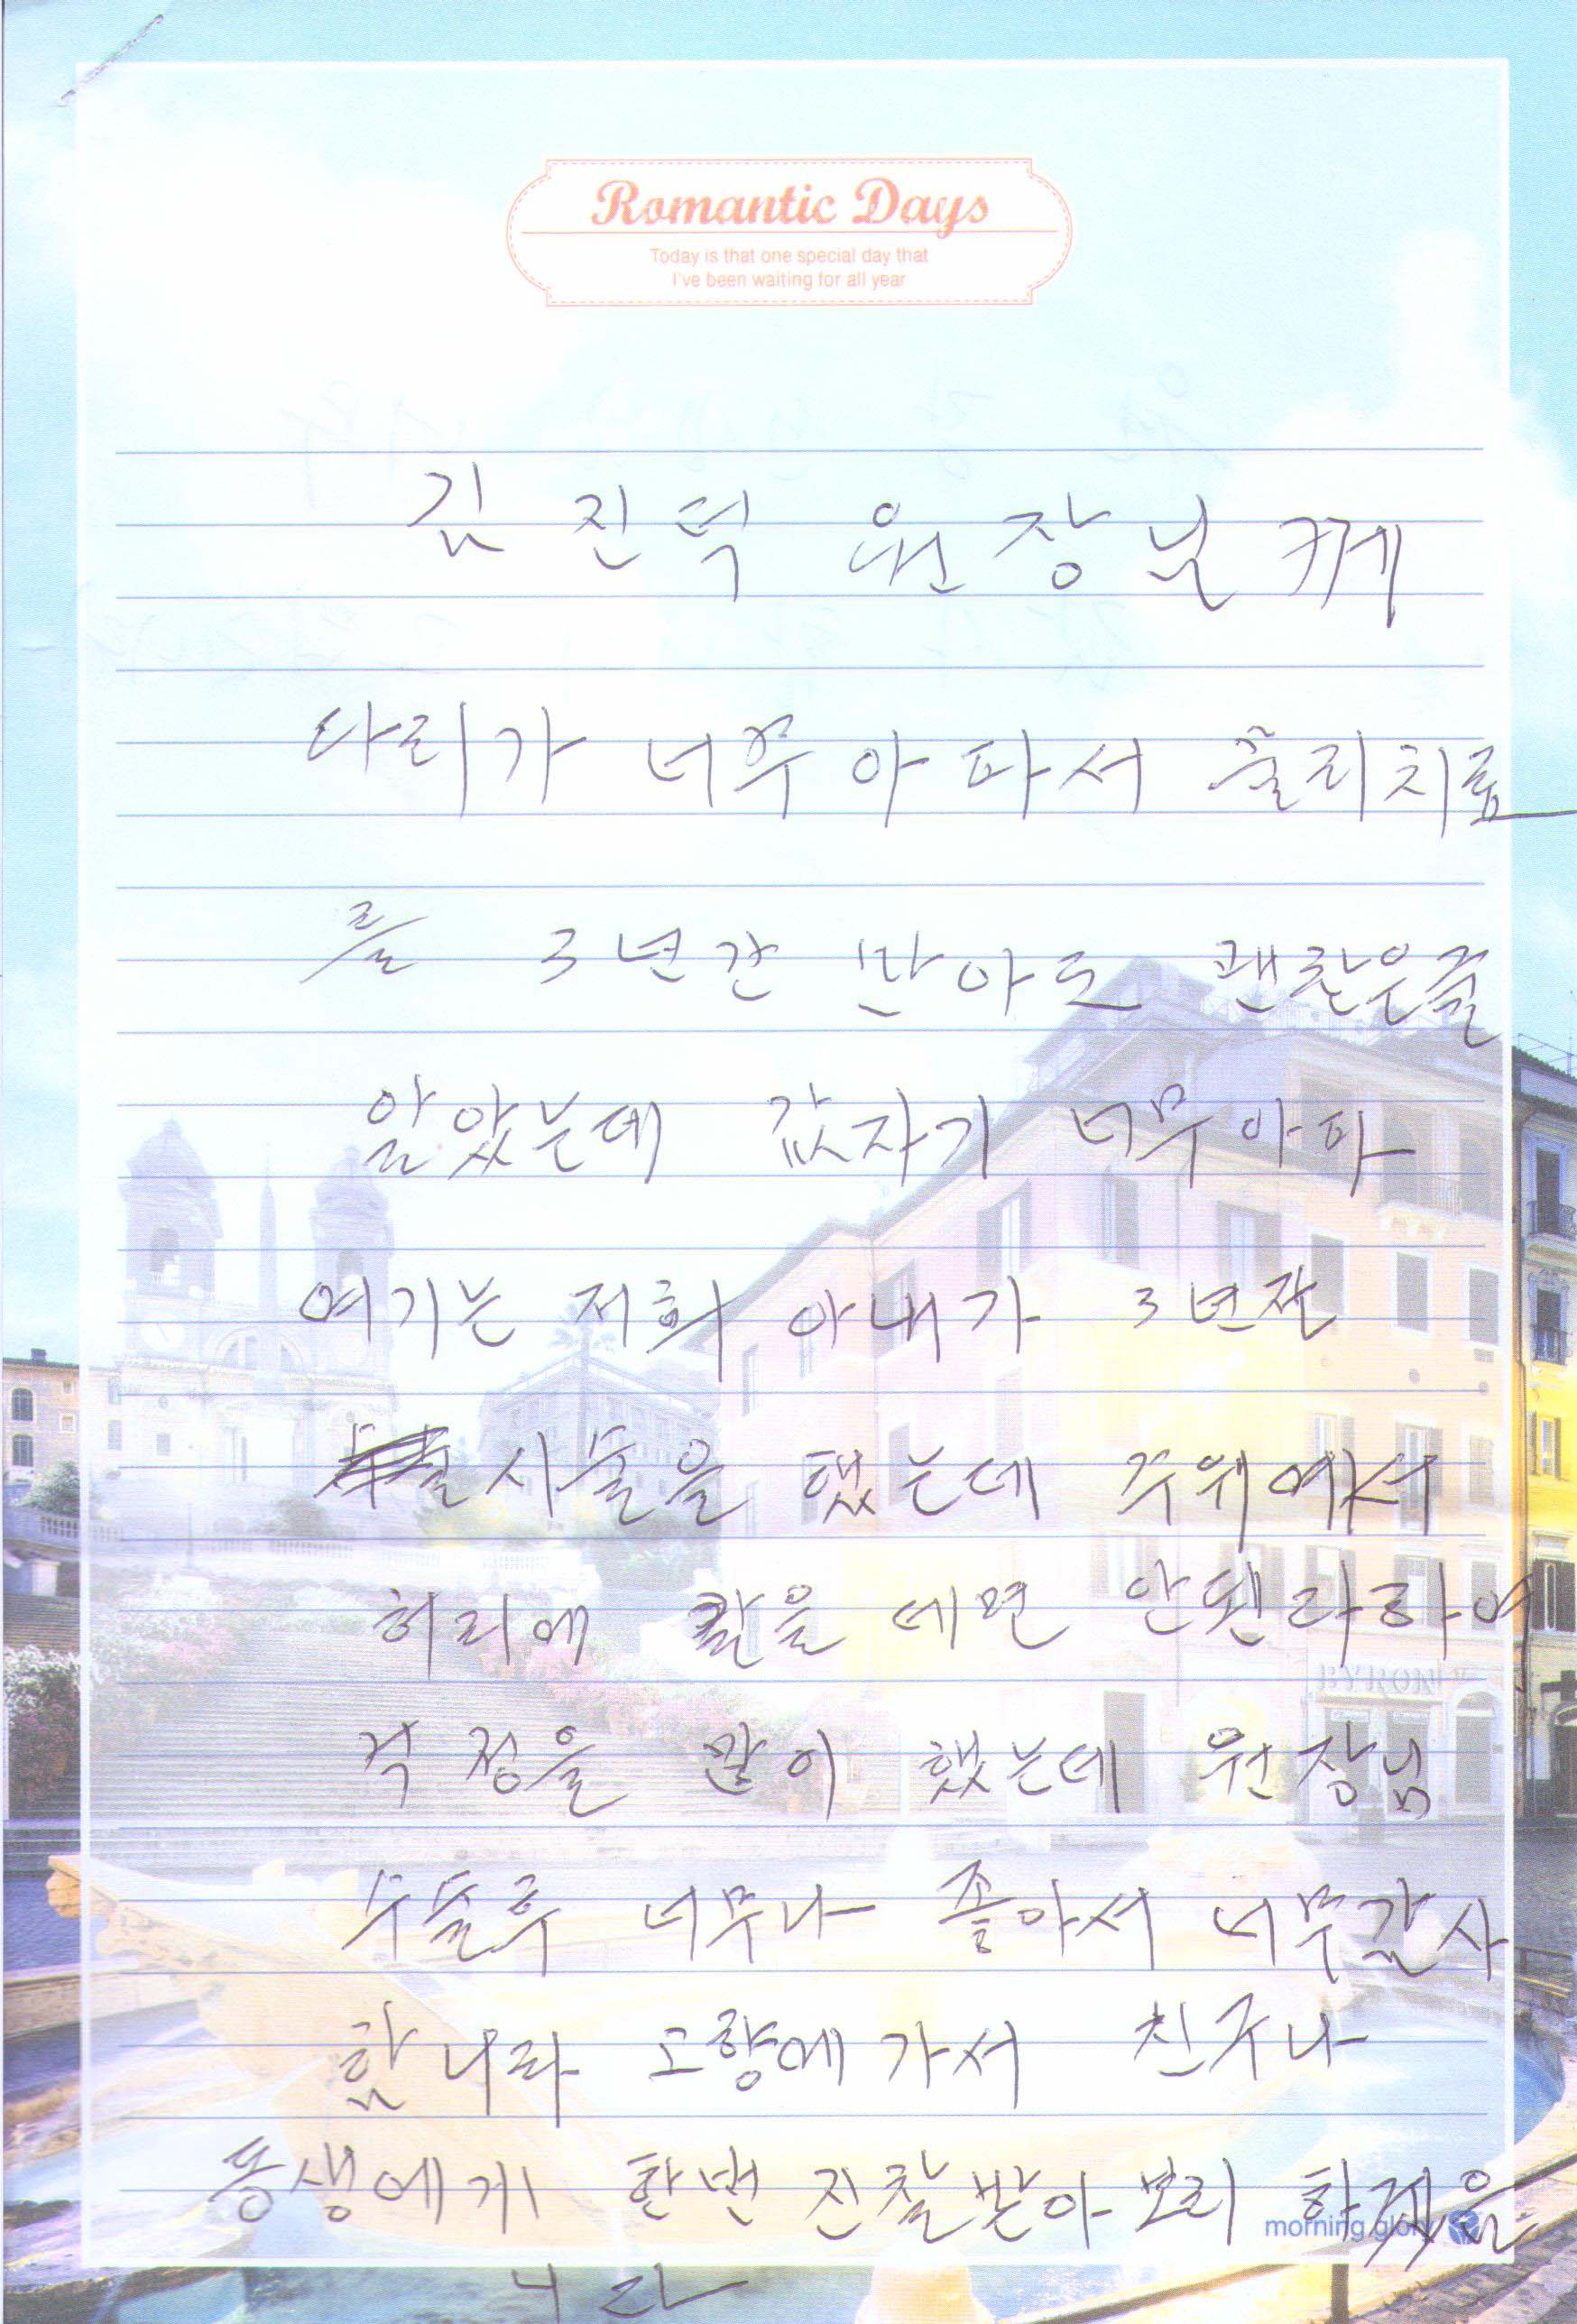 Romantic Days
Today is that one special day that
I've been waiting for all year
김진덕 원장님께
다리가 너무 아파서 물리치료
를 3년간 받아도 괜찮은줄
알았는데 갑자기 너무아파
여기는 저희 아내가 3년전
시술을 했는데 주위에서
허리에 칼을 데면 안된다하여
걱정을 많이 했는데 원장님
수술후 너무나 좋아서 너무감사
합니다 고향에가서 친구나
동생에게 한번 진찰받아보리
니다
BYRON
morning glory